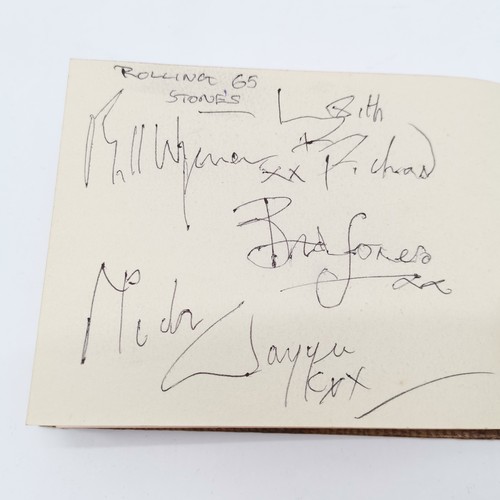 ROLLING 65
STONES
Keith
Bill Wyman xx Richard
Brian Jones
xx
Mick
Jagger
xxx